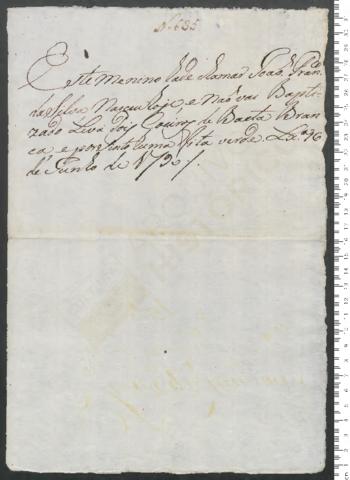 Nº 635
Este Menino hade Chamar Joaõ, Fran.co
da Silva Nasceu hoje, e naõ vay Bapti
zado Leva dois Coeiros de Baeta Bran
ca, e por sinto huma fita verde. Lx.ª 16
de Junho de 1790